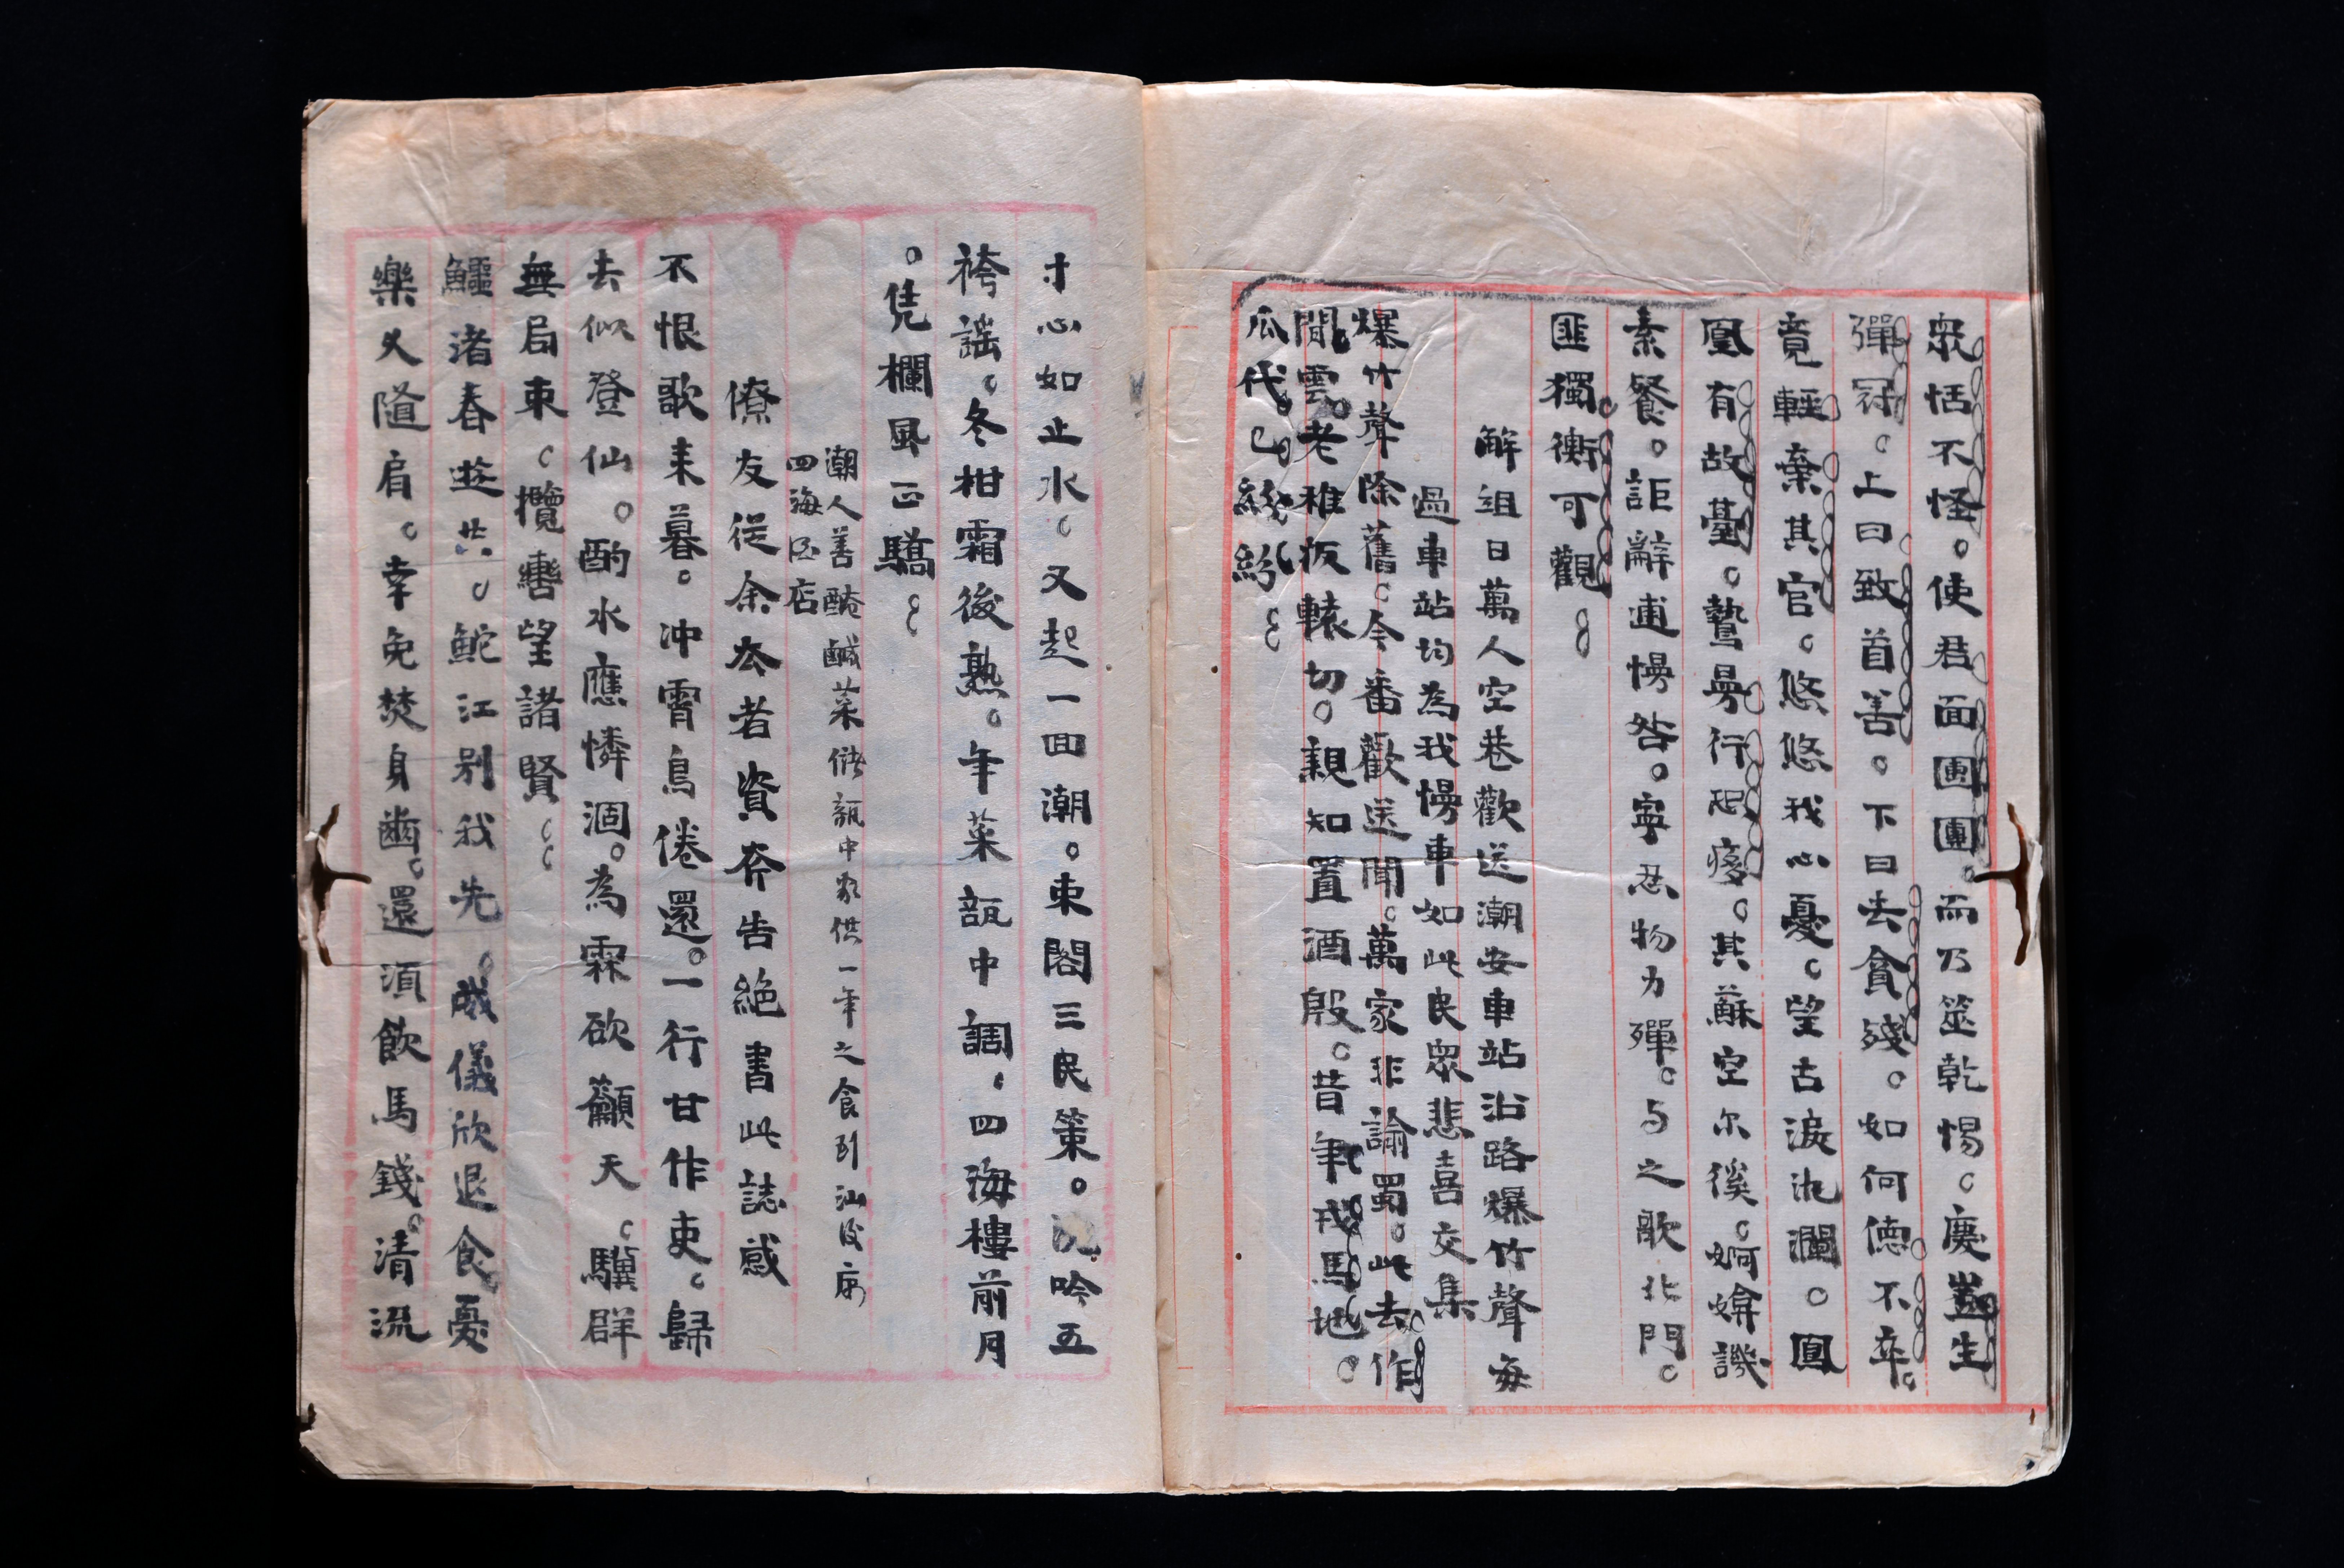 眾恬不怪。使君面團團。而乃筮乾惕。慶生
彈冠。上曰致首善。下曰去貪殘。如何德不卒。
竟輕棄其官。悠悠我心憂。望古淚汍瀾。鳳
凰有故臺。鷙鳥行起痿。其蘇空尔徯。婀媕譏
素餐。詎辭逋慢咎。寧忍物力殫。与之歌北門。
匪獨衡可觀。
解組日萬人空巷歡送潮安車站沿路爆竹聲每
過車站均為我慢車如此民眾悲喜交集
爆竹聲除舊。今番歡送聞。萬家非諭蜀。此去作
閒雲。老稚扳轅切。親知置酒殷。昔年戎馬地。
瓜代已紛紛。
寸心如止水。又起一回潮。東閣三民策。沈吟五
袴謠。冬柑霜後熟。年菜瓿中調。四海樓前月
。凭欄風正驕。
潮人善醃鹹菜儲瓿中家供一年之食到汕後寓
四海酒店
僚友從余去者資斧告絕書此誌感
不恨歌来暮。冲霄鳥倦還。一行甘作吏。歸
去似登仙。酌水應憐涸。為霖欲籲天。驥群
無局束。攬轡望諸賢。
鱷渚春遊共。鮀江别我先。威儀欣退食。憂
樂久隨肩。幸免焚身齒。還須飲馬錢。清流